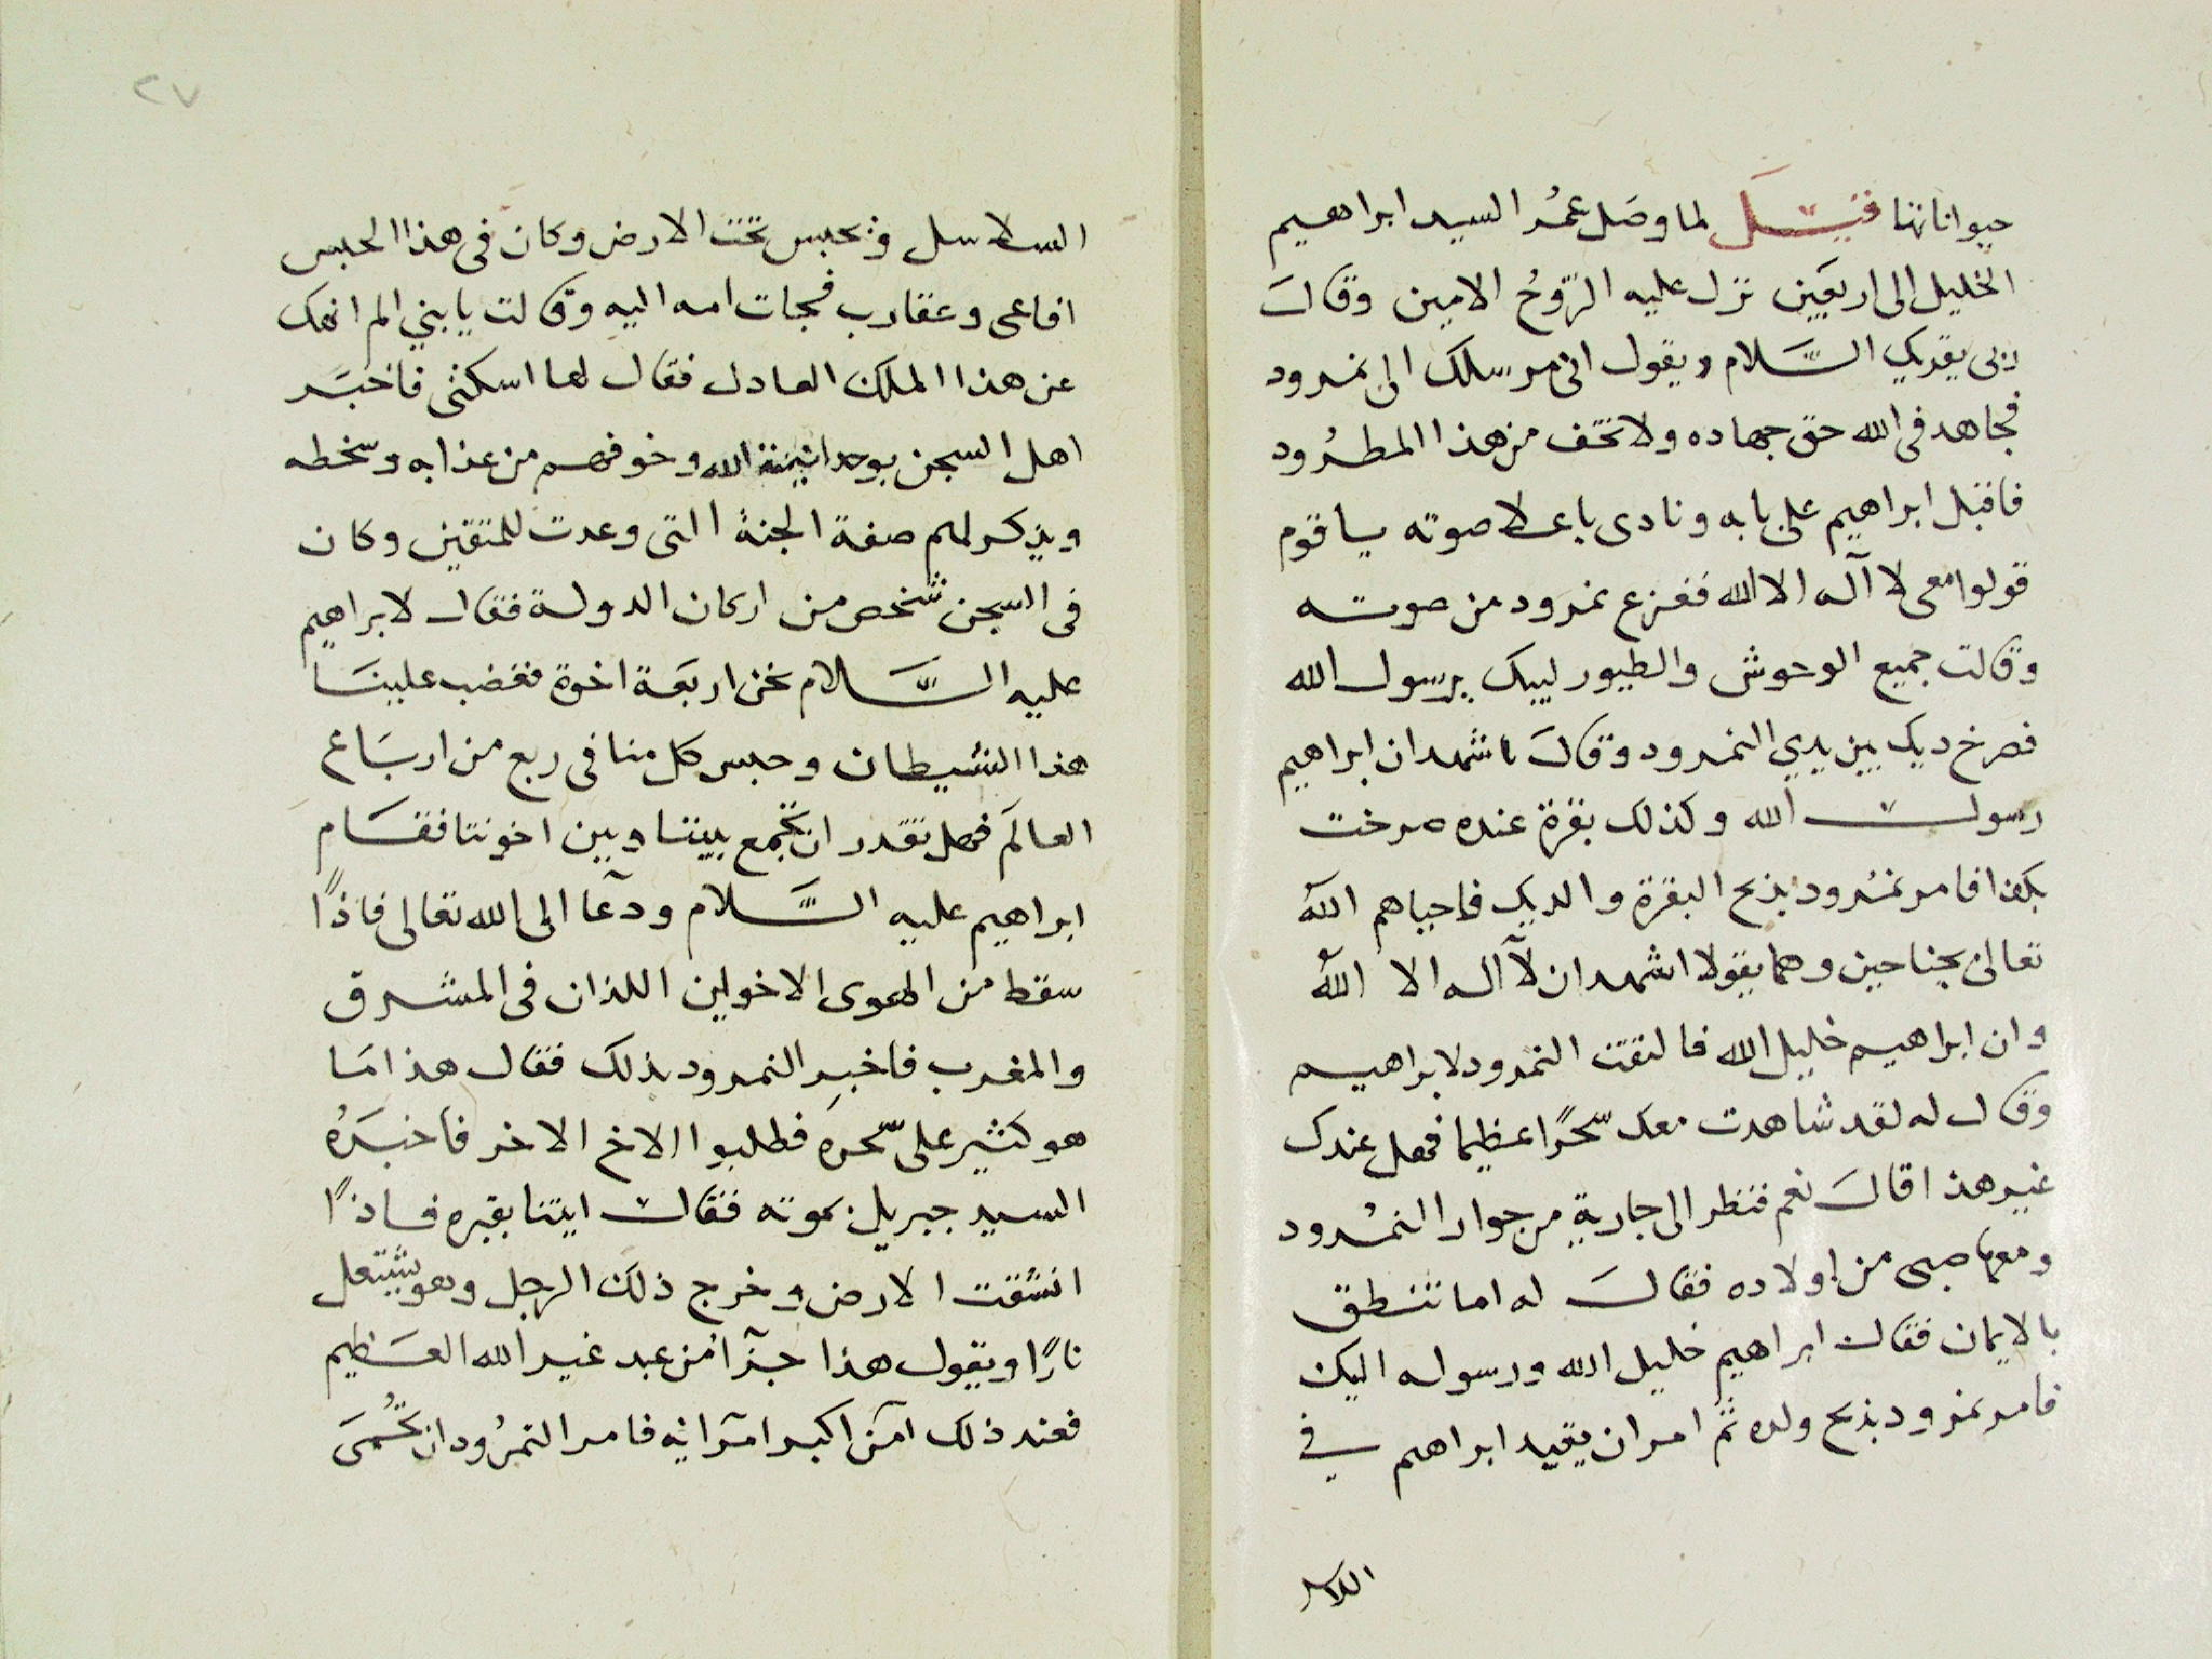 حيواناتها قيل لما وصل عمُر السيد ابراهيم
الخليل الى اربعين نزل عليه الرّوحُ الامين وقالَ
ربى يقريك السَّلام ويقول انى مرسلك الى نمرود
فجاهد فى الله حق جهاده ولا تخف من هذا المطرُود
فاقبل ابراهيم على بابه ونادى باعلا صوته يا قوم
قولوا معى لا آله الا الله ففزع نمرود من صوته
وقالت جميع الوحوش والطيور لبيك يرسول الله
فصرخ ديك بين يدي النمرود وقالَ اشهد ان ابراهيم
رسول الله وكذلك بقرة عنده صرخت
بكذا فامر نمرود بذبح البقرة والديك فاحياهم الله
تعالى بجناحين وهما يقولا اشهد ان لآ اله الا الله
وان ابراهيم خليل الله فالتفت النمرود لابراهيم
وقال له لقد شاهدت معك سحرًا عظيما فهل عندك
غير هذا قالَ نعم فنظر الى جاريةٍ من جوار النمرُود
ومعها صبى من اولاده فقالَ له اما تنطق
بالايمان فقال ابراهيم خليل الله ورسوله اليك
فامر نمرود بذبح ولده ثم امر ان يقيد ابراهم في
السلاسل
٢٧
السلاسل ويحبس تحت الارض وكان فى هذا الحبس
افاعى وعقارب فجات امه اليه وقالت يا بني الم انهك
عن هذا الملك العادل فقال لها اسكتى فاخبَر
اهل السجن بوحدانية الله وخوفهم من عذابه وسخطه
ويذكر لهم صفة الجنة التى وعدت للمتقين وكان
فى السجن شخص من اركان الدولة فقال لابراهيم
عليه السَّلام نحن اربعَة اخوة فغضب علينَا
هذا الشيطان وحبس كل منا فى ربع من اربَاع
العالَم فهل تقدر ان تجمع بيننا وبين اخوتنا فقَام
ابراهيم عليه السَّلام ودعا الى الله تعالى فاذًا
سقط من الهوى الاخوين اللذان فى المشرق
والمغرب فاخبر النمرود بذلك فقال هذا مَا
هو كثير على سّحره فطلبوا الاخ الاخر فاخبَرُه
السيد جبريل بموته فقال ايتنا بقبره فاذًا
انشقت الارض وخرج ذلك الرجل وهو يشتعل
نارًا ويقول هذا جزآ من عبد غير الله العَظيم
فعند ذلك آمن اكبر امرائه فامر النمرُود ان تحُمىَ